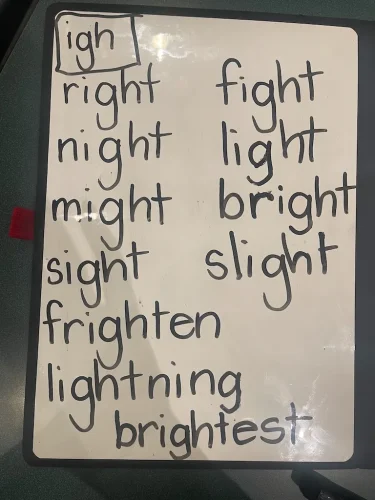 igh
right fight
night light
might bright
sight slight
frighten
lightning
brightest